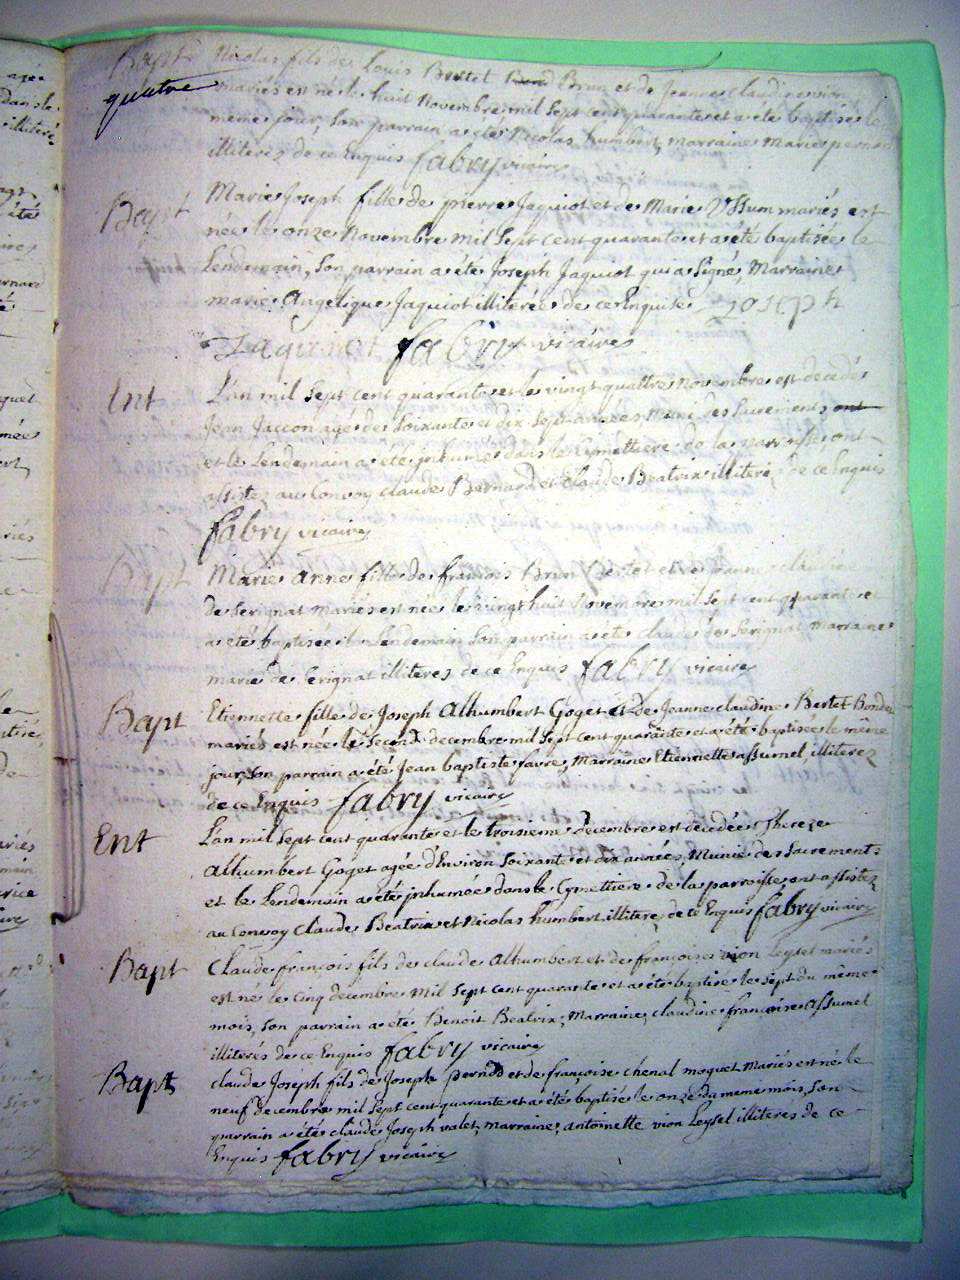 Bapt Nicolas fils de Louis Bertet Brun et de Jeanne claudine vion
quatre mariés est né le huit novembre mil sept cent quarante et a été baptisé le
meme jour, son parrain a été Nicolas humbert, marraine Marie pernod
illiteres de ce Enquis fabry vicaire
Bapt Marie Joseph fille de pierre Jaquiot et de Marie mariés est
née le onze Novembre mil sept cent quarante et a été baptisée le
Lendemain, son parrain a été Joseph Jaquiot qui a signé, Marraine
marie Angelique Jaquiot illiterée de ce Enquise Joseph
Jaquiot fabry vicaire
Ent L'an mil sept cent quarante et le vingt quattre novembre est decedé
Jean Jaccon agé de soixante et dix sept années muni des sacrements
et le Lendemain a été inhumé dans le Cymettiere de la parroisse, ont
assistez au Convoy claude Bernard et claude Beatrix illiterez de ce Enquis
fabry vicaire
Bapt Marie anne fille de françois Brun Bertet et de Jeanne claudine
de Serignat mariés est née le vingt huit Novembre mil sept cent quarante
a été baptisée le Lendemain son parrain a été claude de Serignat marraine
marie de Serignat illiteres de ce Enquis fabry vicaire
Bapt Etiennette fille de Joseph Alhumbert Goget et de Jeanne claudine Bertet Bondet
mariés est née le second decembre mil sept cent quarante et a été baptisée le même
jour, son parrain a été Jean baptiste favre, Marraine Etiennette assumel, illiterez
de ce Enquis fabry vicaire
Ent L'an mil sept cent quarante et le troisieme decembre est decedée Thereze
Alhumbert Goget agée d'Environ soixante et dix années, Munie des sacrements
et le Lendemain a été inhumée dans le Cymettiere de la parroisse, ont assistez
au convoy Claude Beatrix et Nicolas humbert illiteré, de ce Enquis fabry vicaire
Bapt Claude françois fils de claude Alhumbert et de françoise vion Leysel mariés
est né le cinq decembre mil sept cent quarante et a été baptisé le sept du même
mois, son parrain a été Benoit Beatrix, Marraine, claudine françoise Assumel
illiterés de ce Enquis fabry vicaire
Bapt claude Joseph fils de Joseph pernod et de françoise chenal moquet Mariés est né le
neuf decembre mil sept cent quarante et a été baptisé le onze du meme mois, son
parrain a été claude Joseph valet, marraine, antoinette vion Leysel illiteres de ce
Enquis fabry vicaire